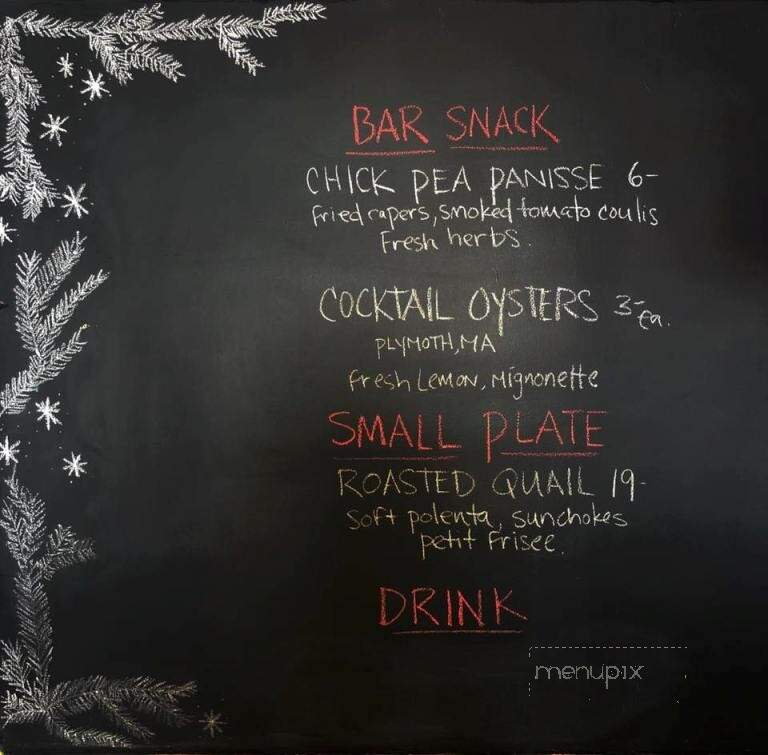 BAR SNACK
CHICK PEA PANISSE 6-
fried capers, smoked tomato coulis
Fresh herbs.
COCKTAIL OYSTERS 3- ea.
PLYMOTH, MA
fresh Lemon, Mignonette
SMALL PLATE
ROASTED QUAIL 19-
soft polenta, sunchokes
petit Frisee.
DRINK
menupix